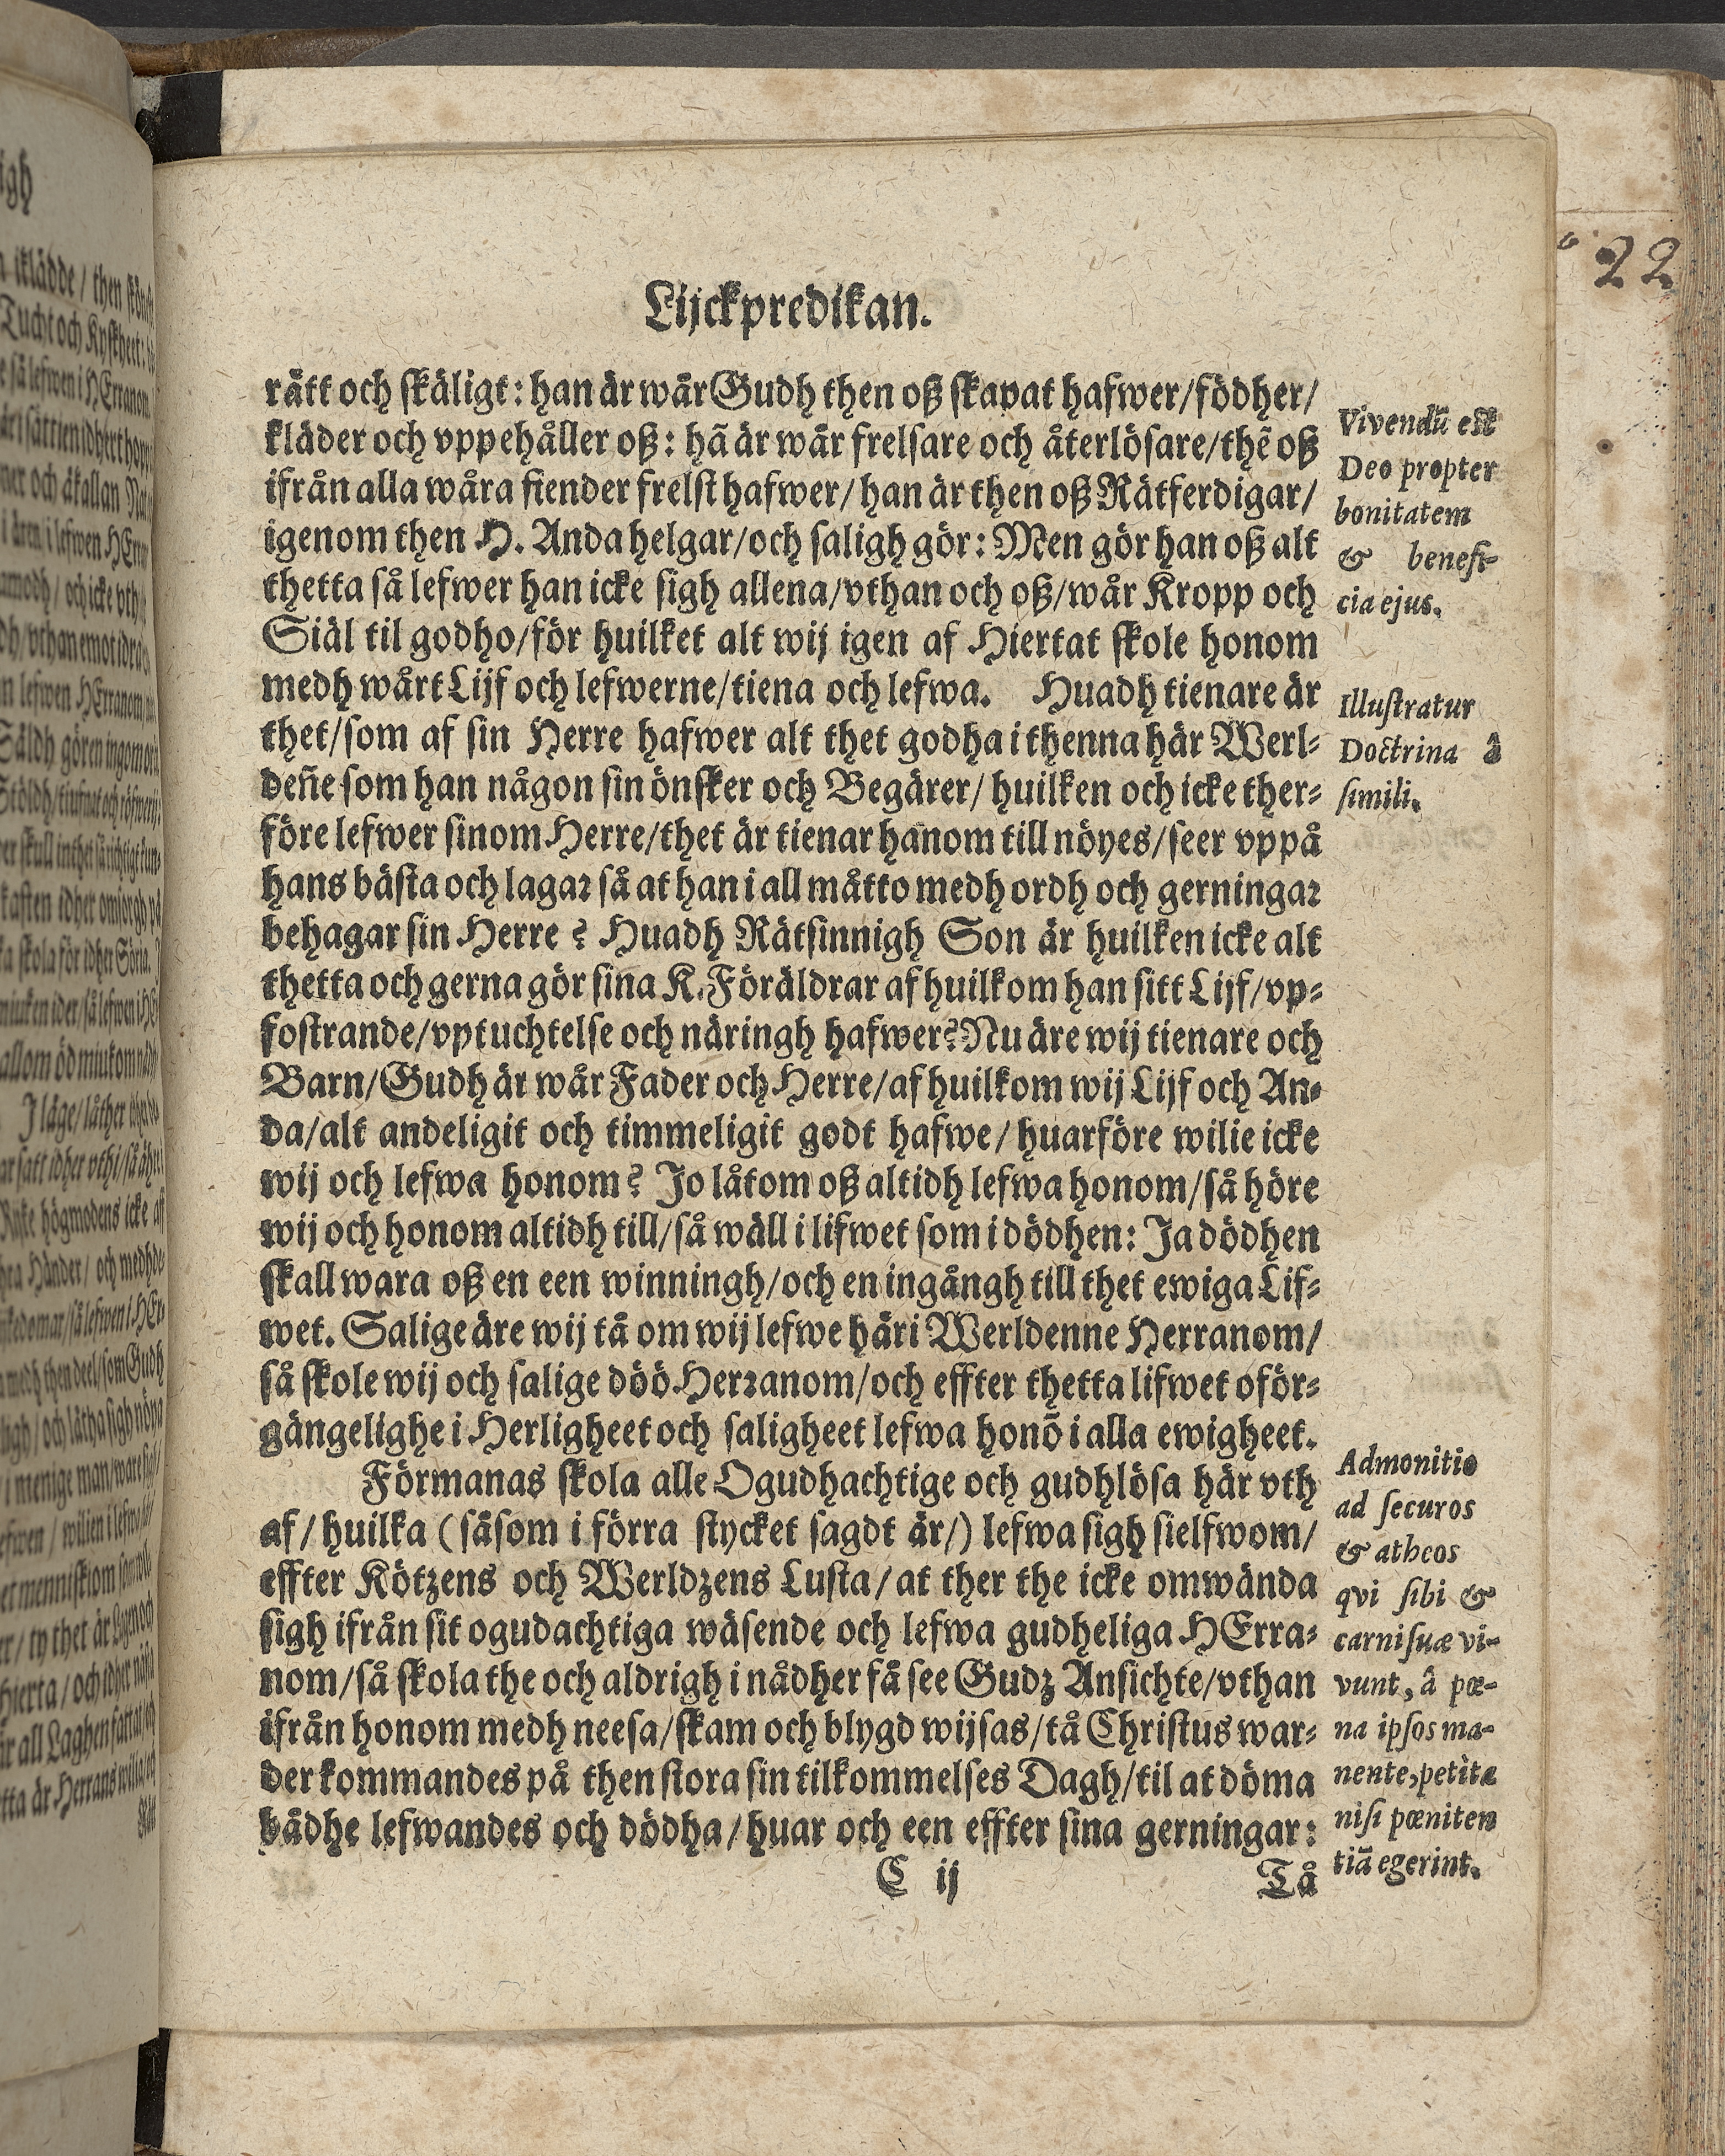 Lijckpredikan.
22
rätt och skäligt: han är wår Gudh then oß skapat hafwer/födher/
kläder och vppehåller oß: hã är wår frelsare och återlösare/thẽ oß
ifrån alla wåra fiender frelst hafwer/ han är then oß Rätferdigar/
igenom then H. Anda helgar/och saligh gör: Men gör han oß alt
thetta så lefwer han icke sigh allena/vthan och oß/wår Kropp och
Siäl til godho/för huilket alt wij igen af Hiertat skole honom
medh wårt Lijf och lefwerne/tiena och lefwa. Huadh tienare är
thet/som af sin Herre hafwer alt thet godha i thenna här Werl-
deñe som han någon sin önsker och Begärer/ huilken och icke ther-
före lefwer sinom Herre/thet är tienar hanom till nöyes/seer vppå
hans bästa och lagar så at han i all måtto medh ordh och gerningar
behagar sin Herre? Huadh Rätsinnigh Son är huilken icke alt
thetta och gerna gör sina K. Föräldrar af huilkom han sitt Lijf/vp-
fostrande/vptuchtelse och näringh hafwer? Nu äre wij tienare och
Barn/Gudh är wår Fader och Herre/af huilkom wij Lijf och An-
da/alt andeligit och timmeligit godt hafwe/ huarföre wilie icke
wij och lefwa honom? Jo låtom oß altidh lefwa honom/så höre
wij och honom altidh till/så wäll i lifwet som i dödhen: Ja dödhen
skall wara oß en een winningh/och en ingångh till thet ewiga Lif-
wet. Salige äre wij tå om wij lefwe häri Werldenne Herranom/
så skole wij och salige döö Herranom/och effter thetta lifwet oför-
gängelighe i Herligheet och saligheet lefwa honõ i alla ewigheet.
Förmanas skola alle Ogudhachtige och gudhlösa här vth
af/ huilka (såsom i förra stycket sagdt är/) lefwa sigh sielfwom/
effter Kötzens och Werldzens Lusta/ at ther the icke omwända
sigh ifrån sit ogudachtiga wäsende och lefwa gudheliga HErra-
nom/så skola the och aldrigh i nådher få see Gudz Ansichte/vthan
ifrån honom medh neesa/skam och blygd wijsas/tå Christus war-
der kommandes på then stora sin tilkommelses Dagh/til at döma
bådhe lefwandes och dödha/huar och een effter sina gerningar:
C ij
Tå
Vivendũ est
Deo propter
bonitatem
& benefi-
cia ejus.
Illustratur
Doctrina â
simili.
Admonitio
ad securos
& atheos
qvi sibi &
carni suæ vi-
vunt, â pœ-
na ipsos ma-
nente, petita
nisi pœniten
tiã egerint.